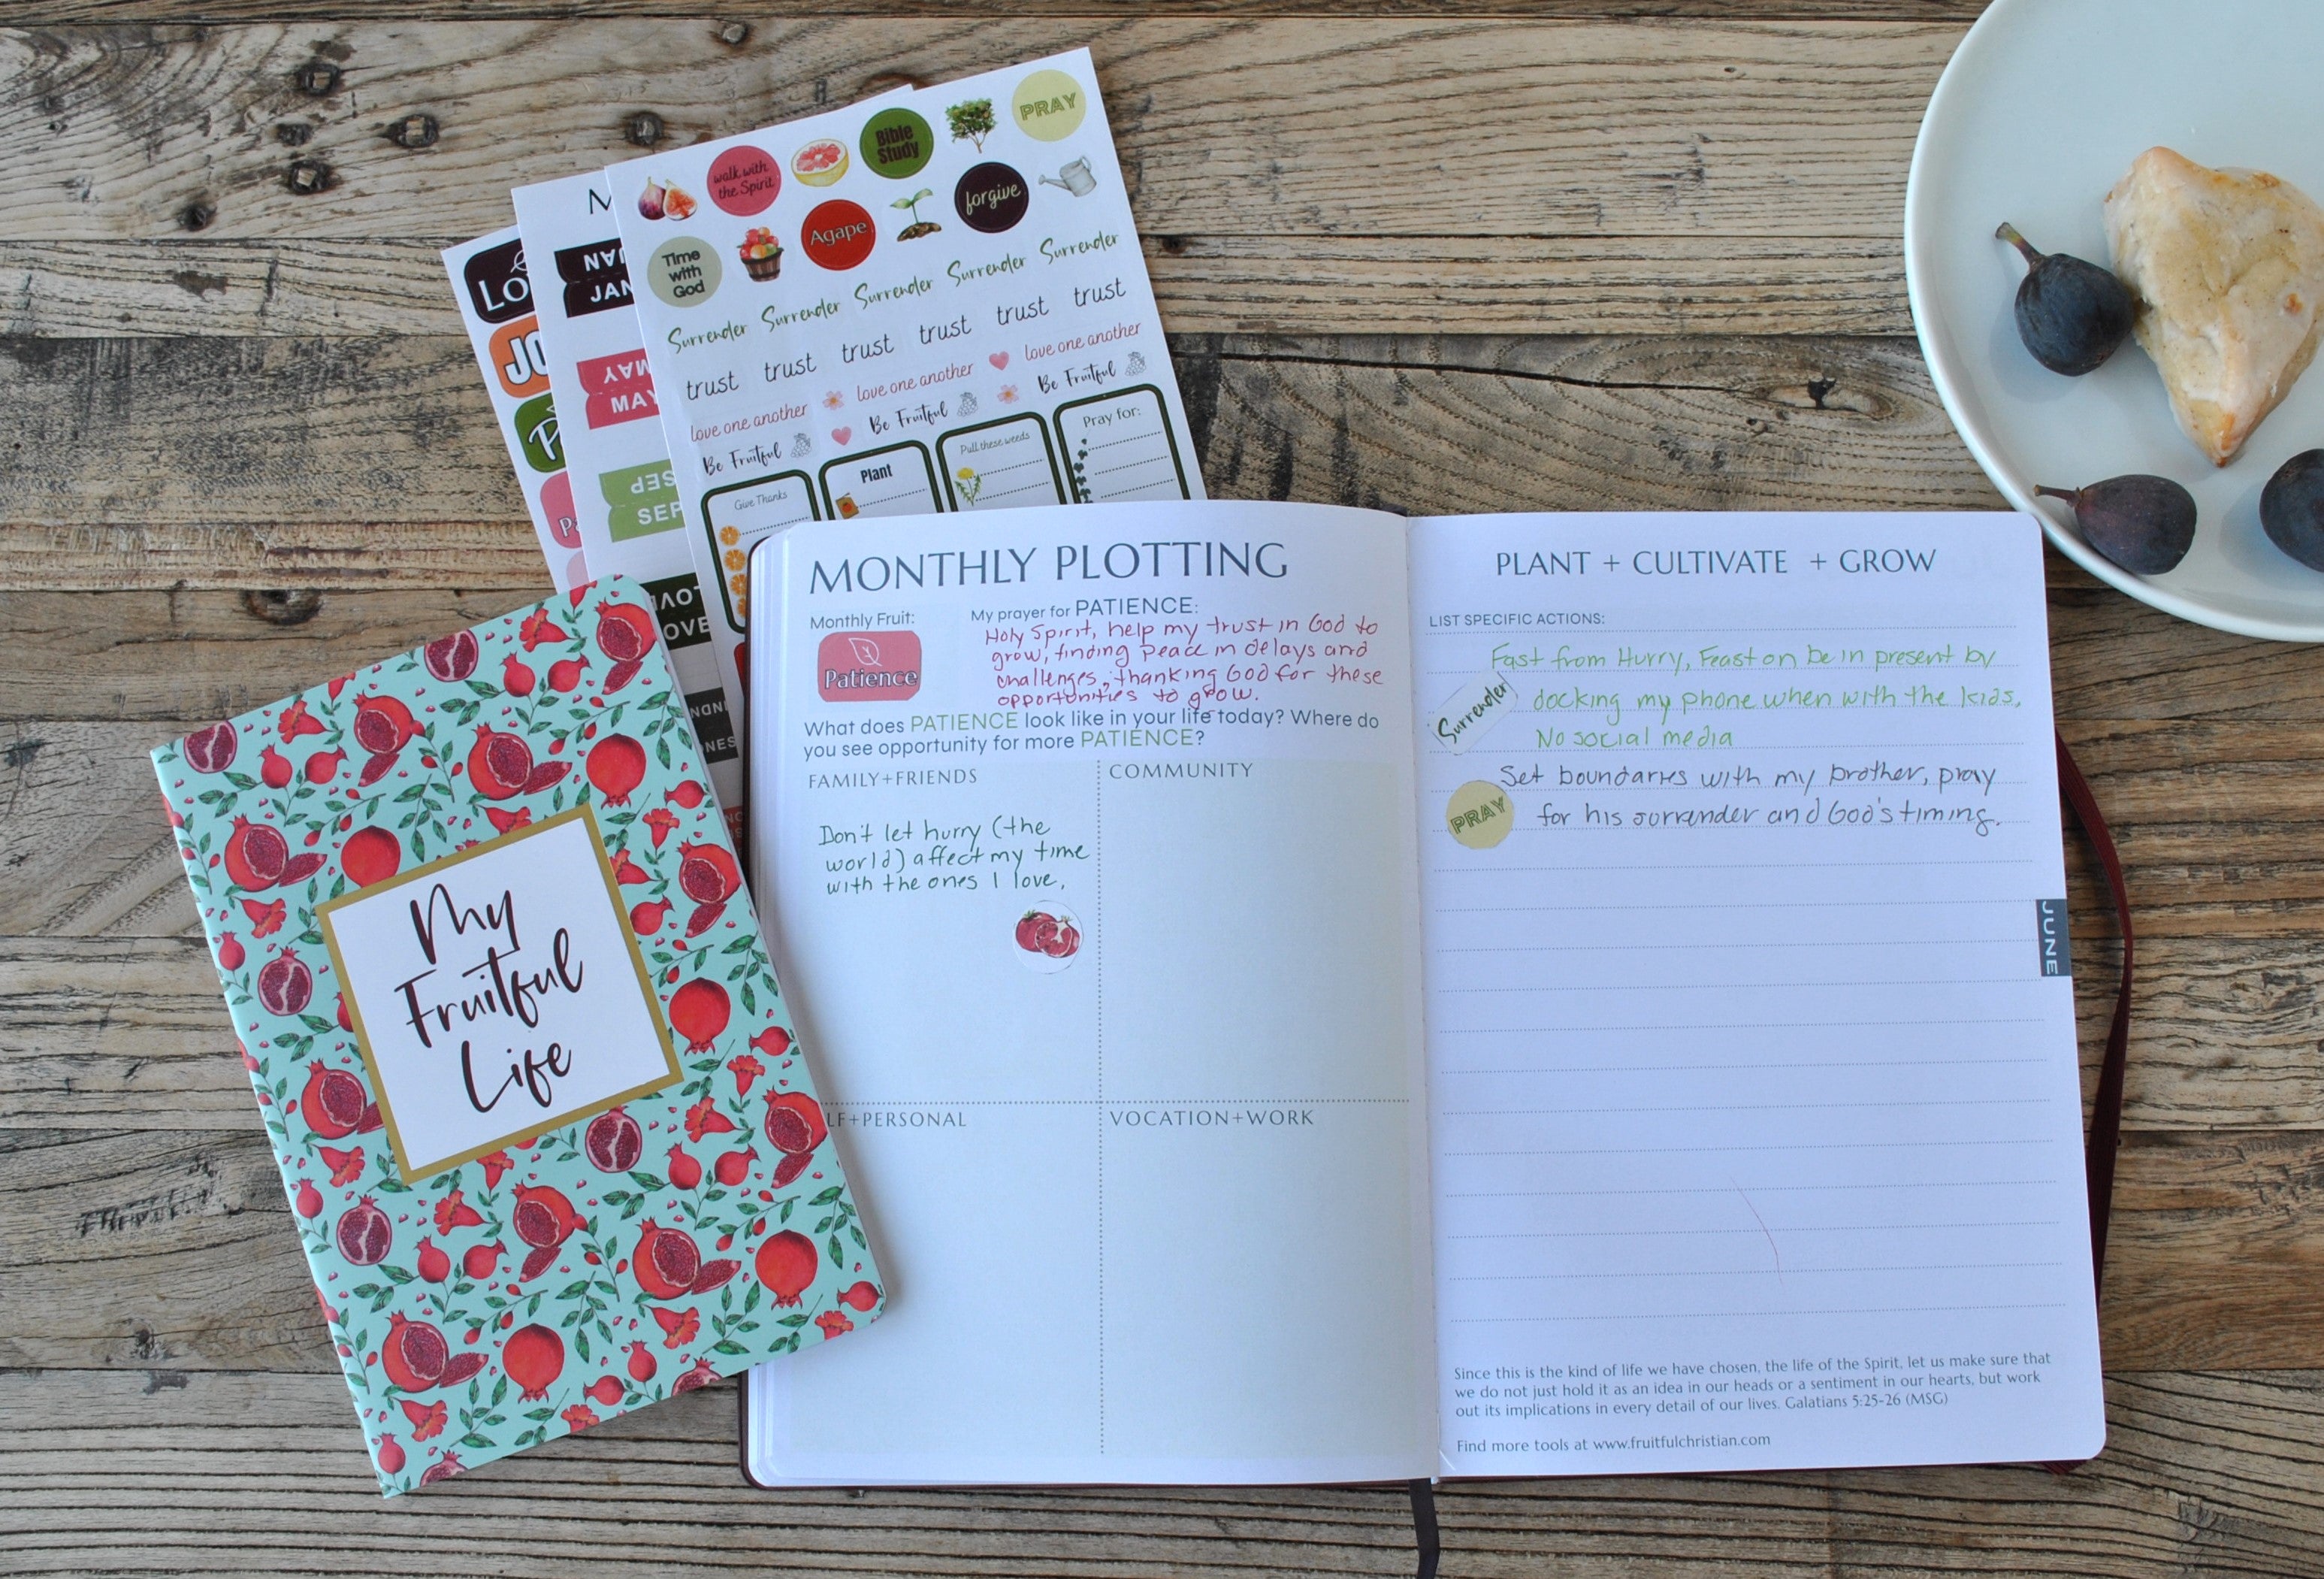 PRAY
Bible
Study
walk with
the Spirit
forgive
Agape
Time
with
God
Surrender Surrender Surrender Surrender Surrender
trust trust trust trust trust trust
love one another love one another love one another
Be Fruitful Be Fruitful Be Fruitful
Give Thanks
Plant
Pull these weeds
Pray for:
M
LO
JO
P
Pa
JAN
JAN
MAY
MAY
SEP
SEP
My
Fruitful
Life
MONTHLY PLOTTING
Monthly Fruit:
Patience
My prayer for PATIENCE:
Holy Spirit, help my trust in God to
grow, finding peace in delays and
challenges, thanking God for these
opportunities to grow.
What does PATIENCE look like in your life today? Where do
you see opportunity for more PATIENCE?
FAMILY+FRIENDS
Don't let hurry (the
world) affect my time
with the ones I love,
COMMUNITY
LF+PERSONAL
VOCATION+WORK
PLANT + CULTIVATE + GROW
LIST SPECIFIC ACTIONS:
Fast from Hurry, Feast on be in present by
docking my phone when with the kids.
No social media
Surrender
Set boundaries with my brother, pray
for his surrender and God's timing.
PRAY
JUNE
Since this is the kind of life we have chosen, the life of the Spirit, let us make sure that
we do not just hold it as an idea in our heads or a sentiment in our hearts, but work
out its implications in every detail of our lives. Galatians 5:25-26 (MSG)
Find more tools at www.fruitfulchristian.com